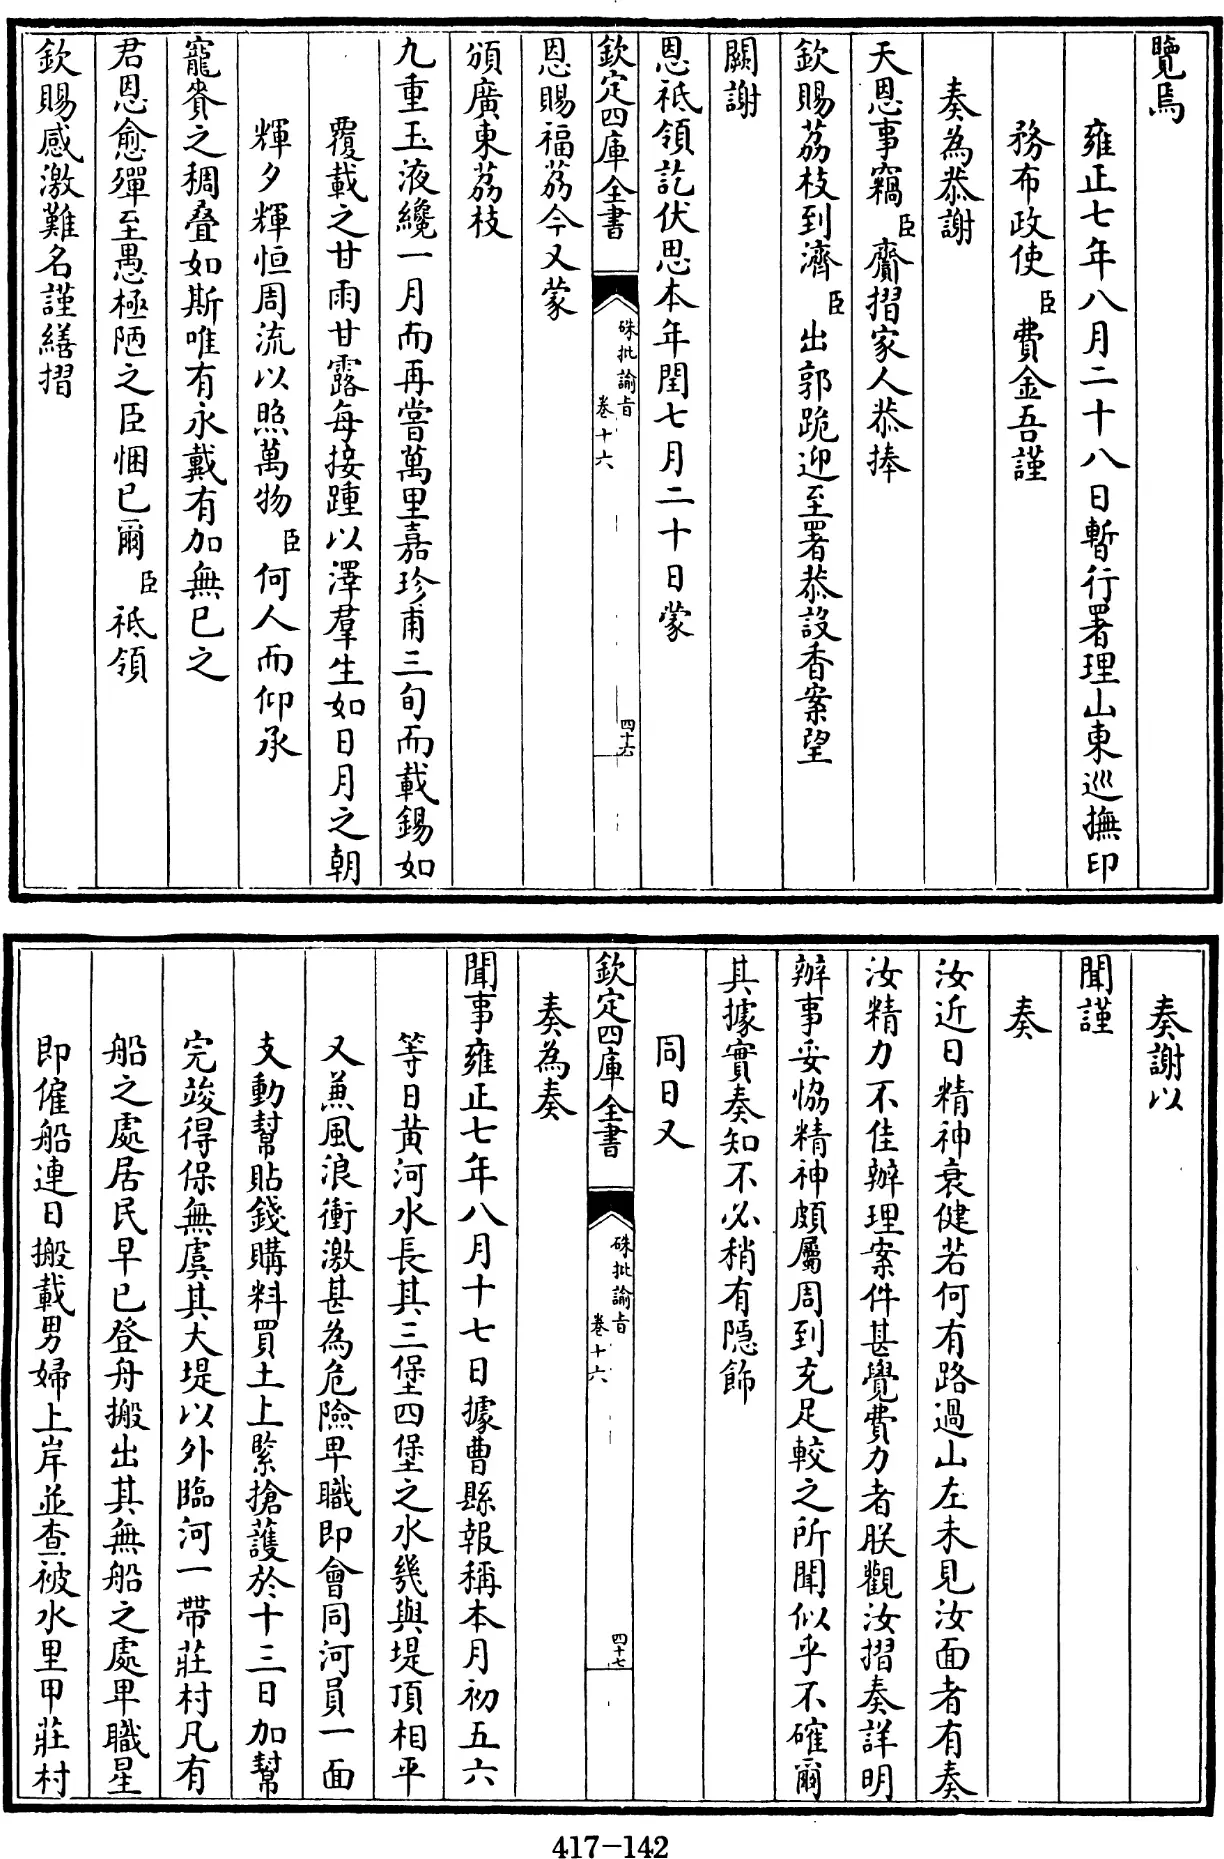 覽焉
雍正七年八月二十八日暫行署理山東巡撫印
務布政使臣費金吾謹
奏為恭謝
天恩事竊臣齎摺家人恭捧
欽賜荔枝到濟臣出郭跪迎至署恭設香案望
闕謝
恩祗領訖伏思本年閏七月二十日蒙
欽定四庫全書
硃批諭旨
卷十六
四十六
恩賜福荔今又蒙
頒廣東荔枝
九重玉液纔一月而再嘗萬里嘉珍甫三旬而載錫如
覆載之甘雨甘露每接踵以澤羣生如日月之朝
輝夕輝恒周流以照萬物臣何人而仰承
寵賚之稠叠如斯唯有永戴有加無已之
君恩愈殫至愚極陋之臣悃已爾臣祗領
欽賜感激難名謹繕摺
奏謝以
聞謹
奏
汝近日精神衰健若何有路過山左未見汝面者有奏
汝精力不佳辦理案件甚覺費力者朕觀汝摺奏詳明
辦事妥協精神頗屬周到充足較之所聞似乎不確爾
其據實奏知不必稍有隱飾
同日又
欽定四庫全書
硃批諭旨
卷十六
四十七
奏為奏
聞事雍正七年八月十七日據曹縣報稱本月初五六
等日黃河水長其三堡四堡之水幾與堤頂相平
又兼風浪衝激甚為危險卑職即會同河員一面
支動幫貼錢購料買土上緊搶護於十三日加幫
完竣得保無虞其大堤以外臨河一帶莊村凡有
船之處居民早已登舟搬出其無船之處卑職星
即僱船連日搬載男婦上岸並查被水里甲莊村
417-142